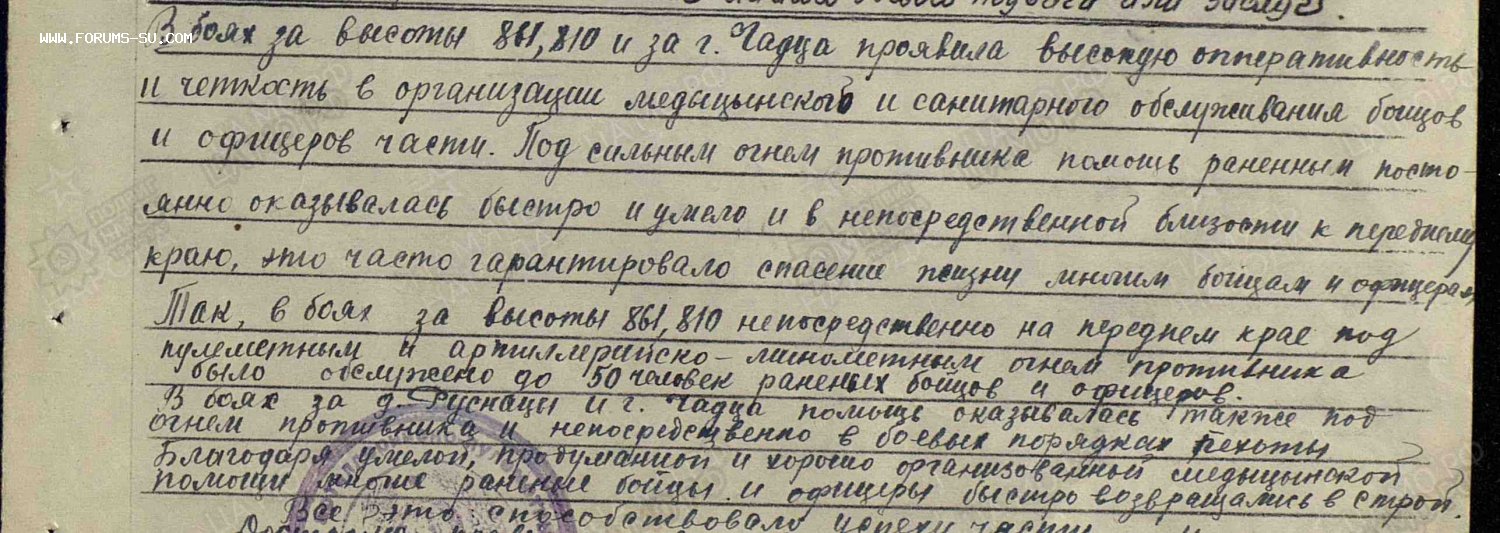 боевого подвига или заслуг.
WWW.FORUMS-SU.COM
В боях за высоты 861, 810 и за г. Чадца проявила высокую опперативность
и четкость в организации медыцынского и санитарного обслуживания бойцов
и офицеров части. Под сильным огнем противника помощь раненным посто-
янно оказывалась быстро и умело и в непосредственной близости к переднему
краю, это часто гарантировало спасение жизни многим бойцам и офицерам
Так, в боях за высоты 861, 810 непосредственно на переднем крае под
пулеметным и артиллерийско-минометным огнем противника
было обслужено до 50 человек раненых бойцов и офицеров.
В боях за д. Руснацы и г. Чадца помощь оказывалась также под
огнем противника и непосредственно в боевых порядках пехоты
Благодаря умелой, продуманной и хорошо организованной медыцынской
помощи многие раненые бойцы и офицеры быстро возвращались в строй.
Все это способствовало успеху части